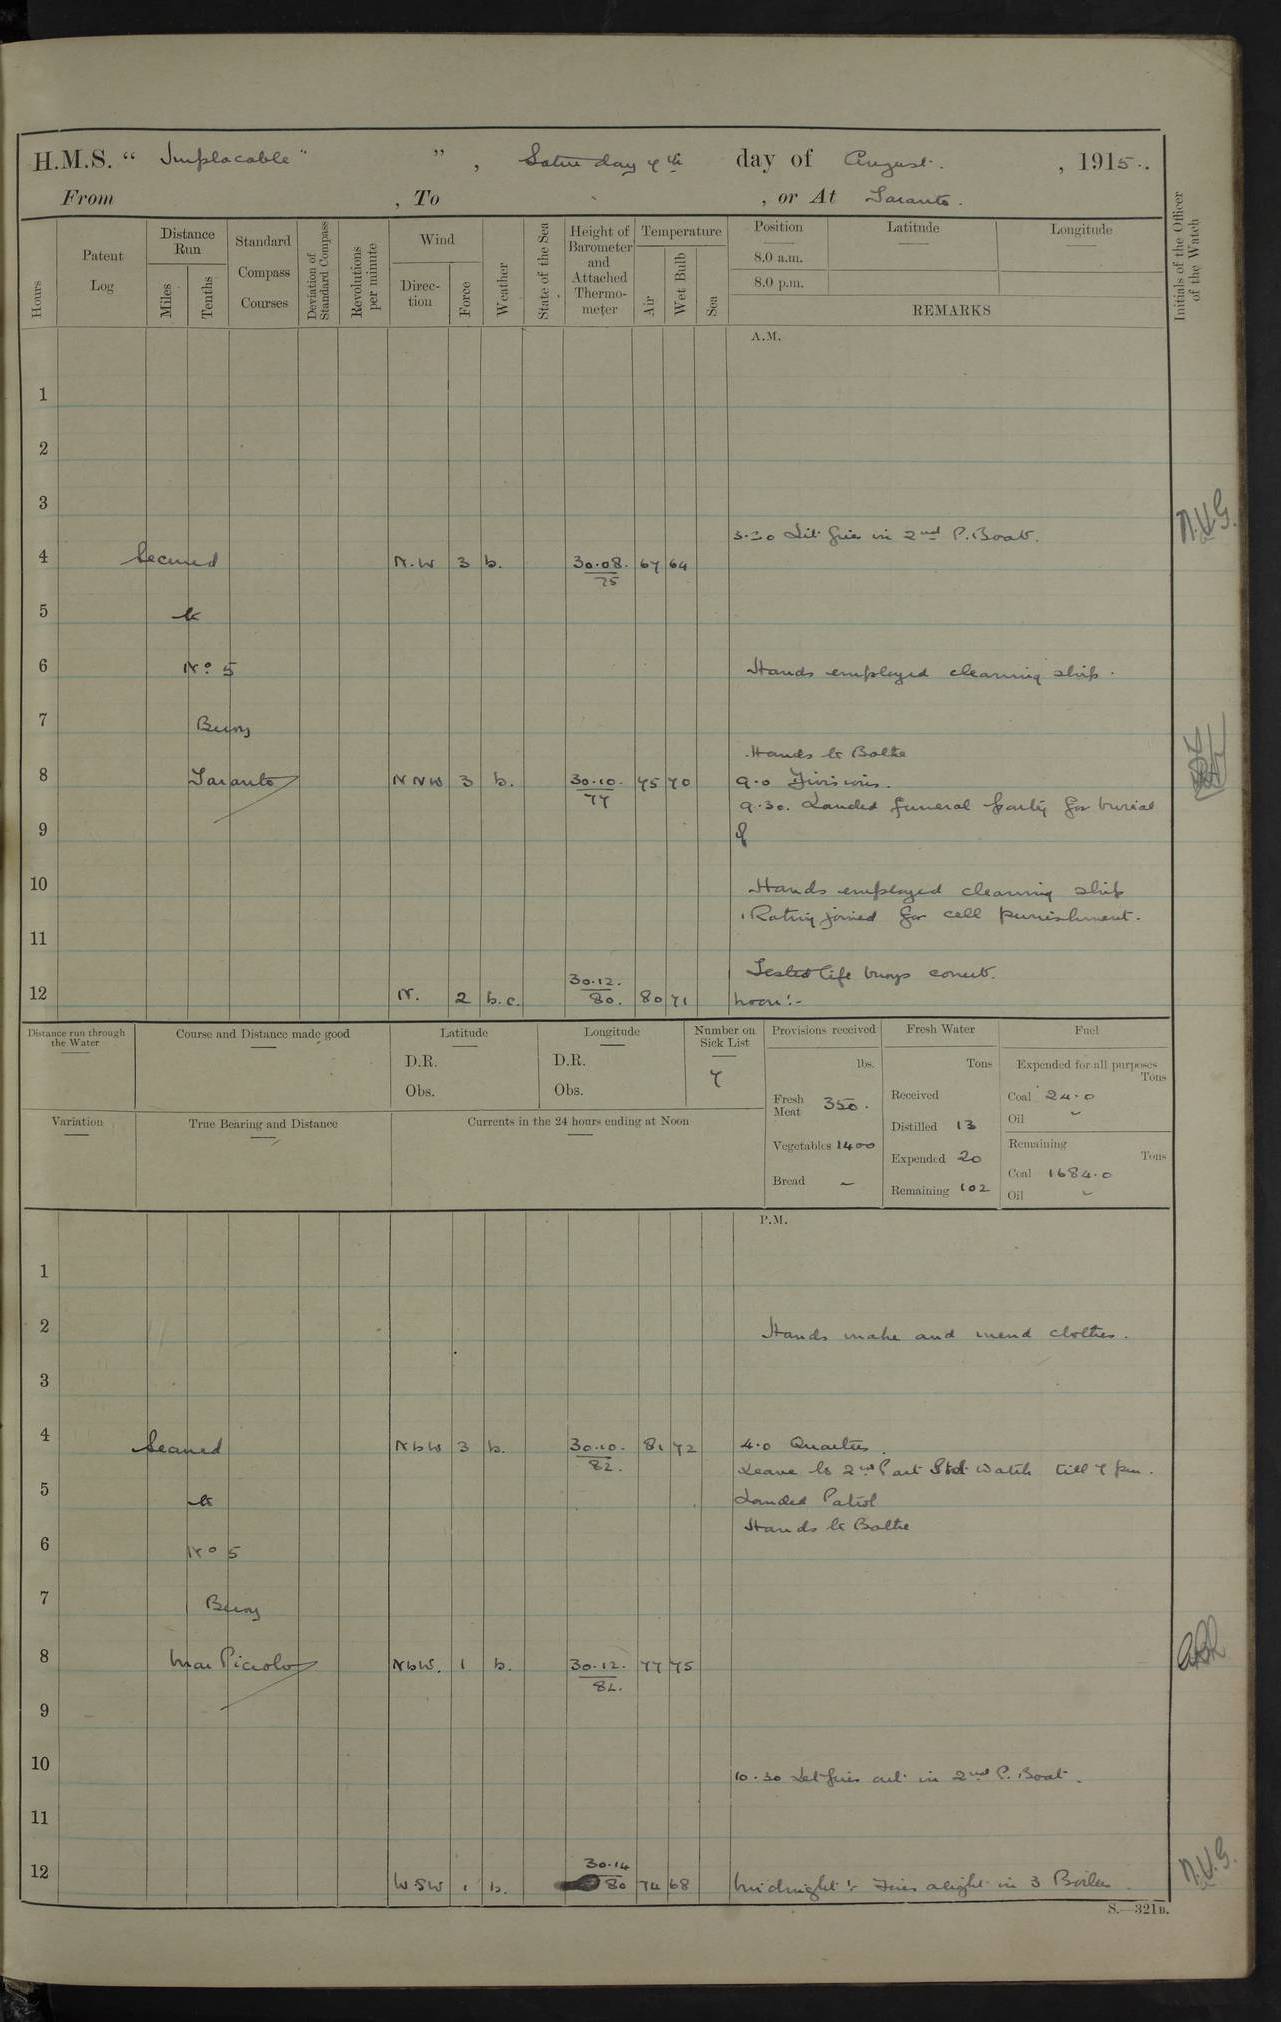 H.M.S. “ Implacable " ” , Saturday 7th day of August. , 1915..
From , To , or At Taranto.
Hours
Patent Log
Distance Run
Miles
Tenths
Standard Compass Courses
Deviation of Standard Compass
Revolutions per minute
Wind
Direction
Force
Weather
State of the Sea
Height of Barometer and Attached Thermometer
Temperature
Air
Wet Bulb
Sea
Position
8.0 a.m.
8.0 p.m.
Latitude
Longitude
REMARKS
Initials of the Officer of the Watch
A.M.
1
2
3
3.30 Lit fires in 2nd P. Boat.
N.V.G.
4 Secured N.W 3 b. 30.08. 75 67 64
5 to
6 No. 5 Hands employed cleaning ship.
7 Buoy
Hands to Bathe
8 Taranto NNW 3 b. 30.10. 77 75 70 9.0 Divisions.
9.30. Landed funeral party for burial
9 of
10 Hands employed cleaning ship
1 Rating joined for cell punishment.
11
Tested life buoys correct.
12 N. 2 b.c. 30.12. 80. 80 71 noon:-
Distance run through the Water
Course and Distance made good
Latitude
D.R.
Obs.
Longitude
D.R.
Obs.
Number on Sick List
7
Provisions received
lbs.
Fresh Meat 350.
Vegetables 1400
Bread –
Fresh Water
Tons
Received
Distilled 13
Expended 20
Remaining 102
Fuel
Expended for all purposes
Tons
Coal 24.0
Oil -
Remaining
Tons
Coal 1684.0
Oil -
Variation
True Bearing and Distance
Currents in the 24 hours ending at Noon
P.M.
1
2 Hands make and mend clothes.
3
4 Secured NbW 3 b. 30.10. 82. 81 72 4.0 Quarters.
Leave to 2nd Part Stbd Watch till 7 pm.
5 to Landed Patrol
Hands to Bathe
6 No 5
7 Buoy
8 Mar Piccolo NbW. 1 b. 30.12. 82. 77 75
9
10 10.30 Let fires out in 2nd P. Boat.
11
12 WSW 1 b. 30.14 80 74 68 Midnight:- Fires alight in 3 Boilers
N.V.G.
S.—321B.